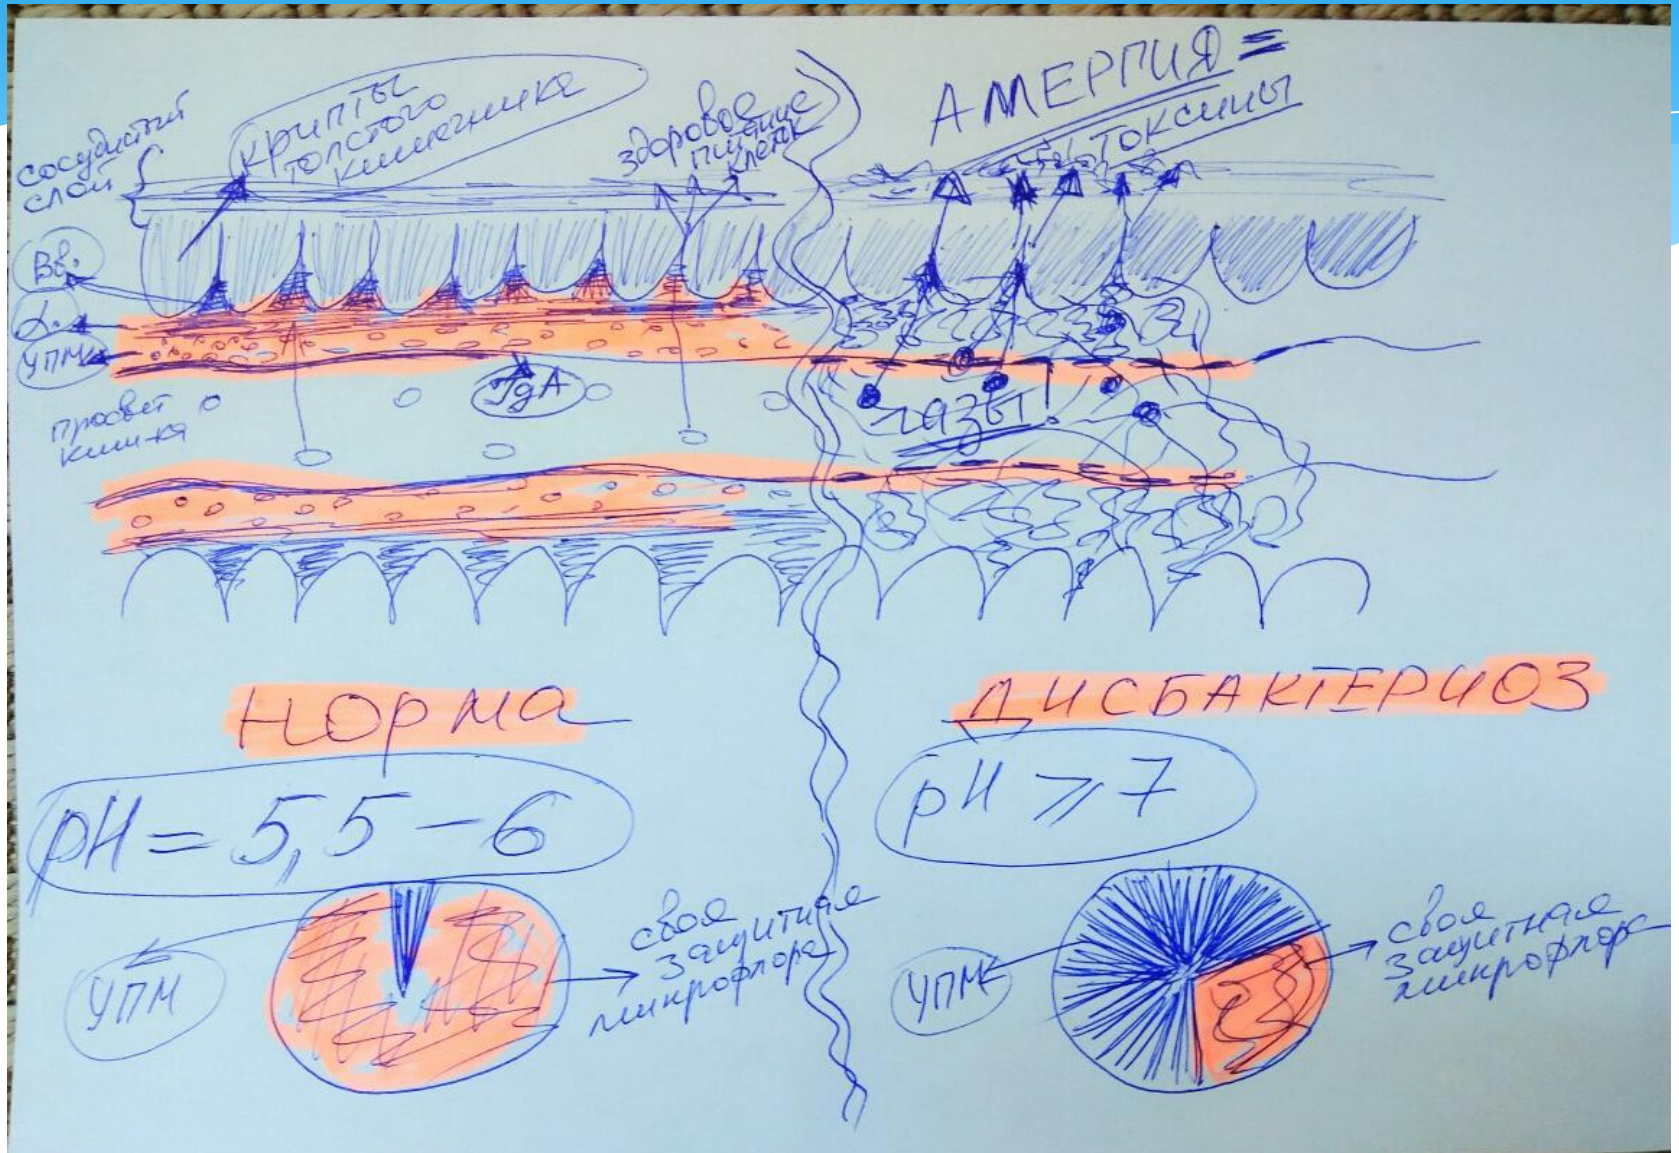 сосудистый
слой
крипты
толстого
кишечника
здоровое
питание
клеток
АЛЛЕРГИЯ =
ТОКСИНЫ
Вв.
L.
УПМ
JgA
просвет
киш-ка
газы!
НОРМА
ДИСБАКТЕРИОЗ
pH = 5,5 – 6
pH ⩾ 7
УПМ
своя
защитная
микрофлора
УПМ
своя
защитная
микрофлора